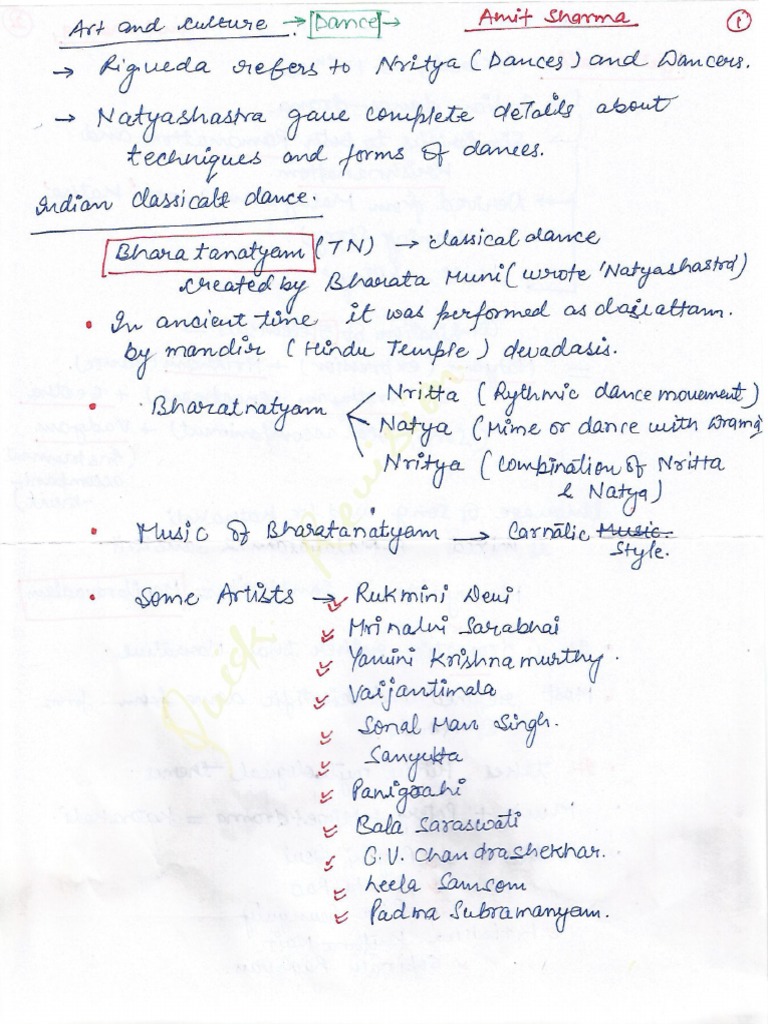 Art and Culture → Dance → Amit Sharma ①
→ Rigveda refers to Nritya (Dances) and Dancers.
→ Natyashastra gave complete details about
techniques and forms of dances.
Indian classical dance
Bharatanatyam (TN) → classical dance
created by Bharata Muni (wrote 'Natyashastra')
• In ancient time it was performed as dasiattam.
by mandir (Hindu Temple) devadasis.
Nritta (Rythmic dance movement)
• Bharatnatyam Natya (Mime or dance with Drama)
Nritya (Combination of Nritta
& Natya)
• Music of Bharatanatyam → Carnatic Music
Style.
• Some Artists → Rukmini Devi
Mrinalni Sarabhai
Yamini Krishnamurthy.
Vaijantimala
Sonal Man Singh.
Sanyukta
Panigrahi
Bala Saraswati
C.V. Chandrashekhar.
Leela Samsom
Padma Subramanyam.
Quick Revision